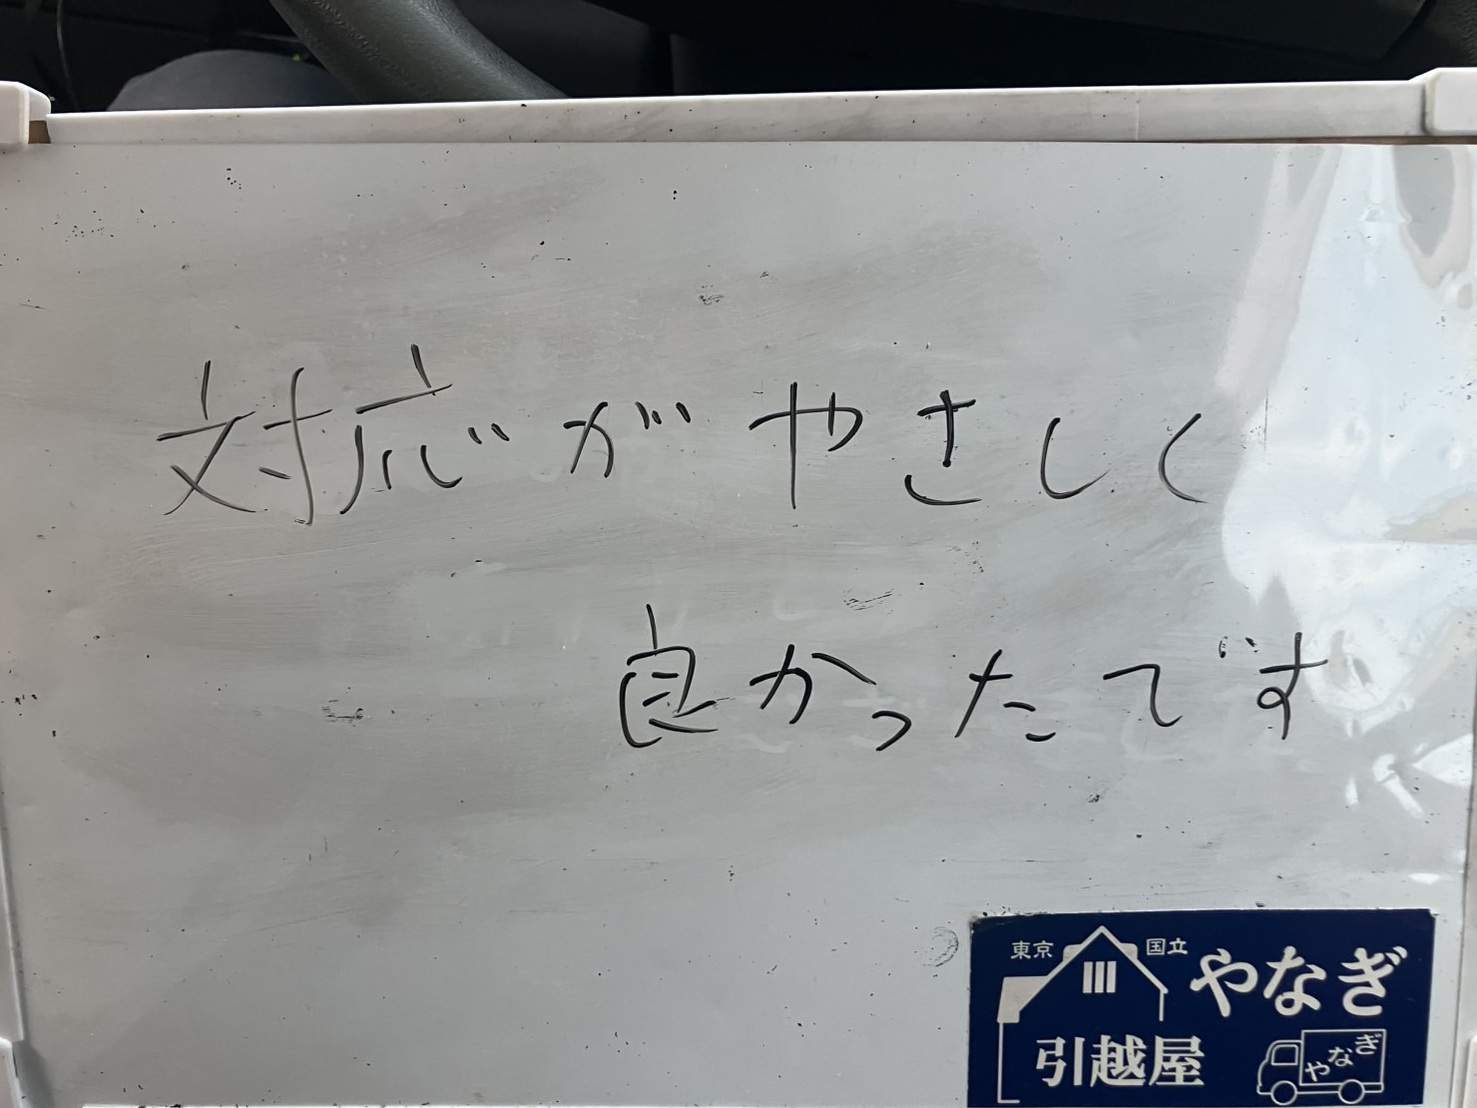 対応がやさしく
良かったです
東京 国立 やなぎ
引越屋
やなぎ